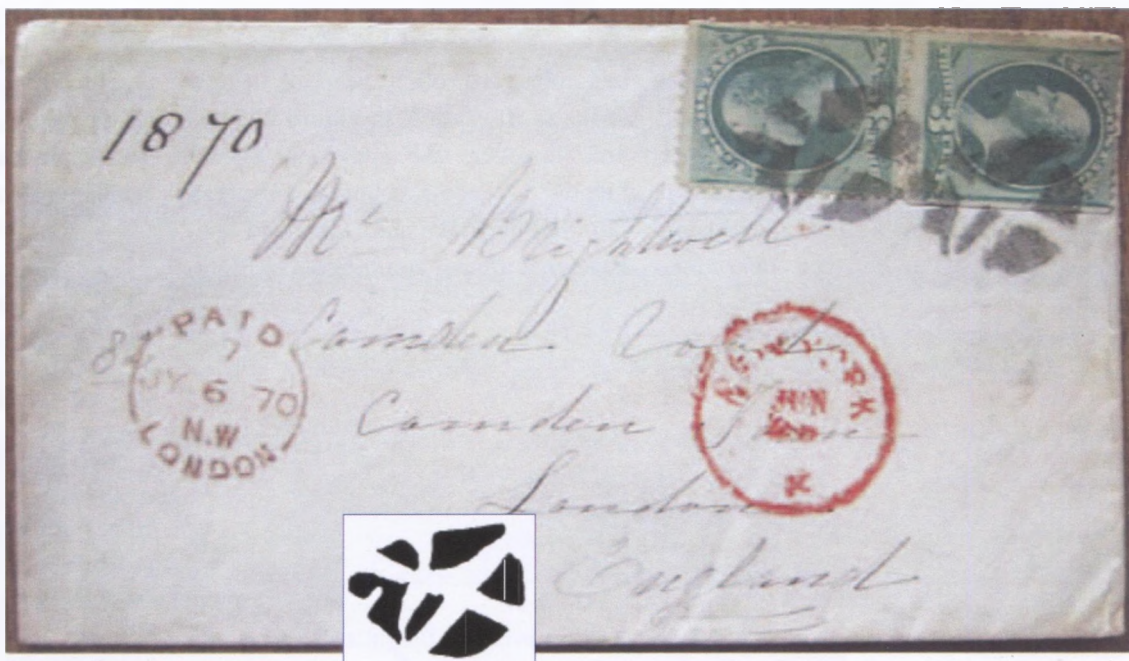 1870
Mr. Brightwell
Camden Road
Camden Town
London
England
PAID
7
JY 6 70
N.W
LONDON
NEW YORK
JUN
K